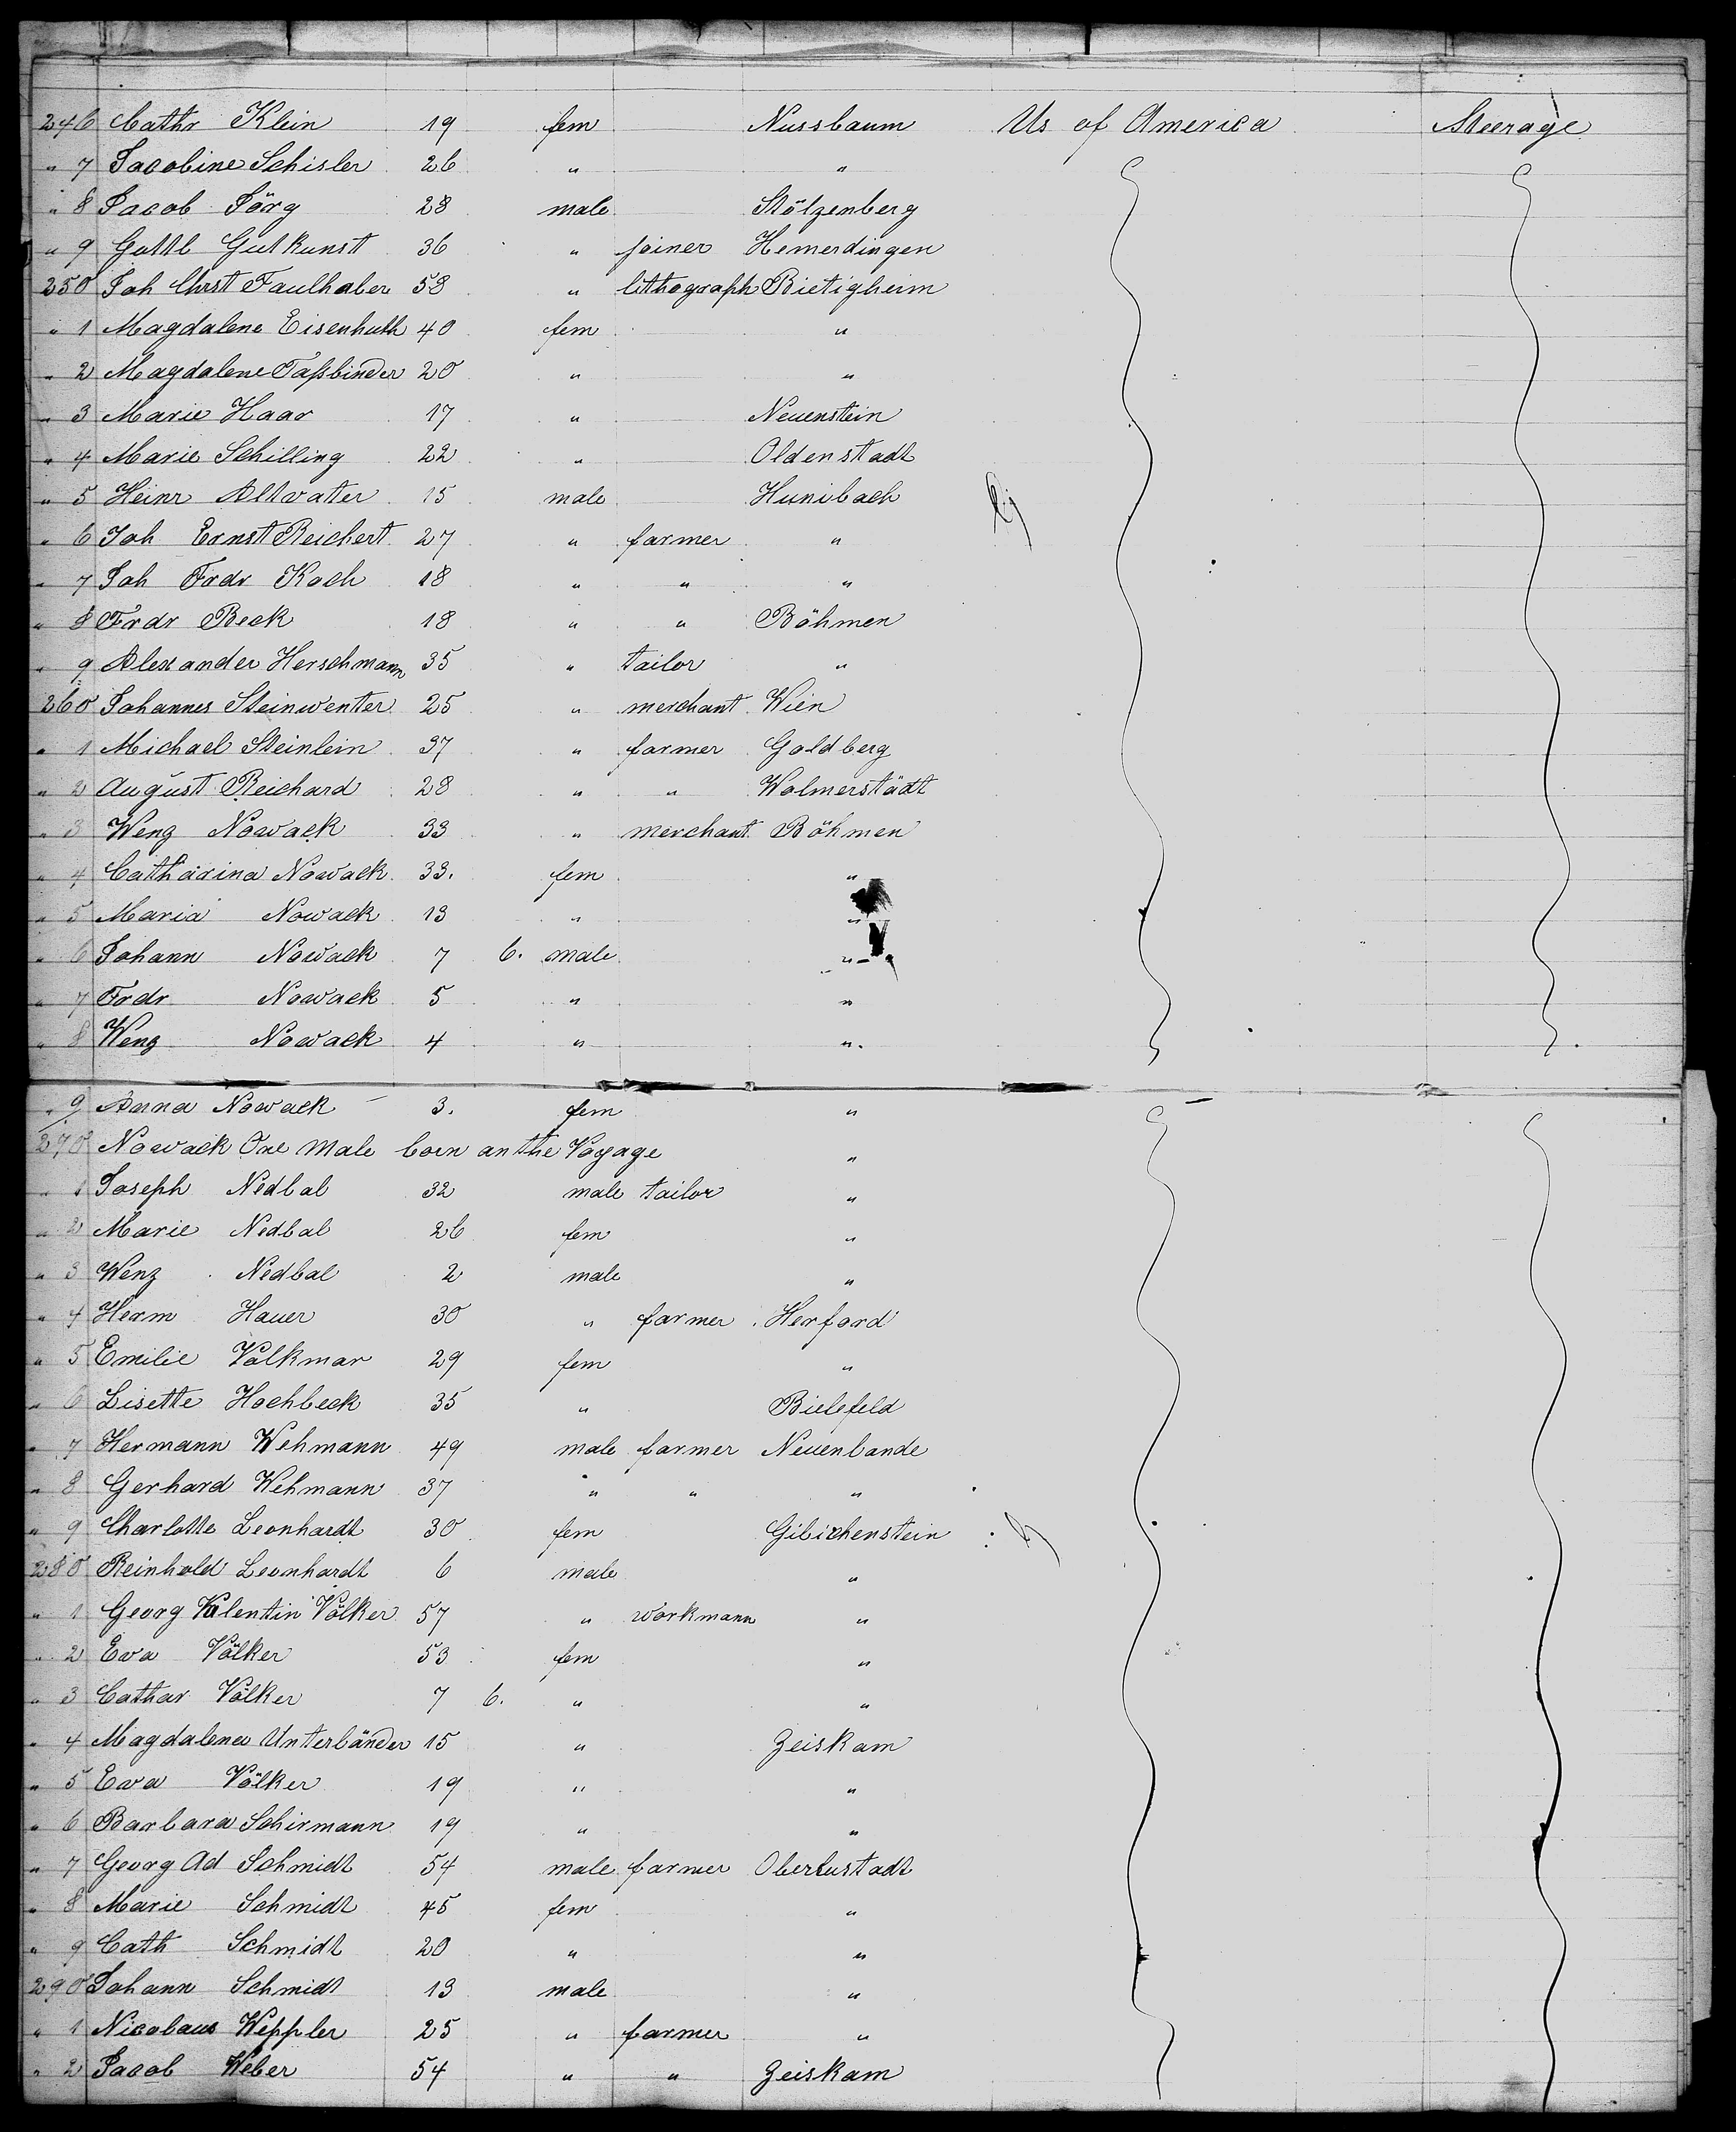 246 Cathr Klein 19 fem Nussbaum Us of America Steerage
" 7 Jacobine Schisler 26 " "
" 8 Jacob Jörg 28 male Stölzenberg
" 9 Gottl Gutkunst 36 " joiner Hemerdingen
250 Joh Christ Faulhaber 58 " lithograph Bietigheim
" 1 Magdalene Eisenhuth 40 fem "
" 2 Magdalene Faßbinder 20 " "
" 3 Marie Haar 17 " Neuenstein
" 4 Marie Schilling 22 " Oldenstadt
" 5 Heinr Altvater 15 male Hunibach
" 6 Joh Ernst Reichert 27 " farmer "
" 7 Joh Frdr Koch 18 " " "
" 8 Frdr Beck 18 " " Böhmen
" 9 Alexander Herschmann 35 " tailor "
260 Johannes Steinwenter 25 " merchant Wien
" 1 Michael Steinlein 37 " farmer Goldberg
" 2 August Reichard 28 " " Wolmerstädt
" 3 Wenz Nowack 33 " merchant Böhmen
" 4 Catharina Nowack 33. fem "
" 5 Maria Nowack 13 " "
" 6 Johann Nowack 7 6. male "
" 7 Frdr Nowack 5 " "
" 8 Wenz Nowack 4 " "
" 9 Anna Nowack 3. fem "
270 Nowack One male born on the Voyage "
" 1 Joseph Nedbal 32 male tailor "
" 2 Marie Nedbal 26 fem "
" 3 Wenz Nedbal 2 male "
" 4 Herm Hauer 30 " farmer Herford
" 5 Emilie Volkmar 29 fem "
" 6 Lisette Hochbeck 35 " Bielefeld
" 7 Hermann Wehmann 49 male farmer Neuenlande
" 8 Gerhard Wehmann 37 " " "
" 9 Charlotte Leonhardt 30 fem Gibichenstein
280 Reinhold Leonhardt 6 male "
" 1 Georg Valentin Völker 57 " workmann "
" 2 Eva Völker 53 fem "
" 3 Cathar Völker 7 6. " "
" 4 Magdalena Unterländer 15 " Zeiskam
" 5 Eva Völker 19 " "
" 6 Barbara Schirmann 19 " "
" 7 Georg Ad Schmidt 54 male farmer Oberlustadt
" 8 Marie Schmidt 45 fem "
" 9 Cath Schmidt 20 " "
290 Johann Schmidt 13 male "
" 1 Nicolaus Weppler 25 " farmer "
" 2 Jacob Weber 54 " " Zeiskam